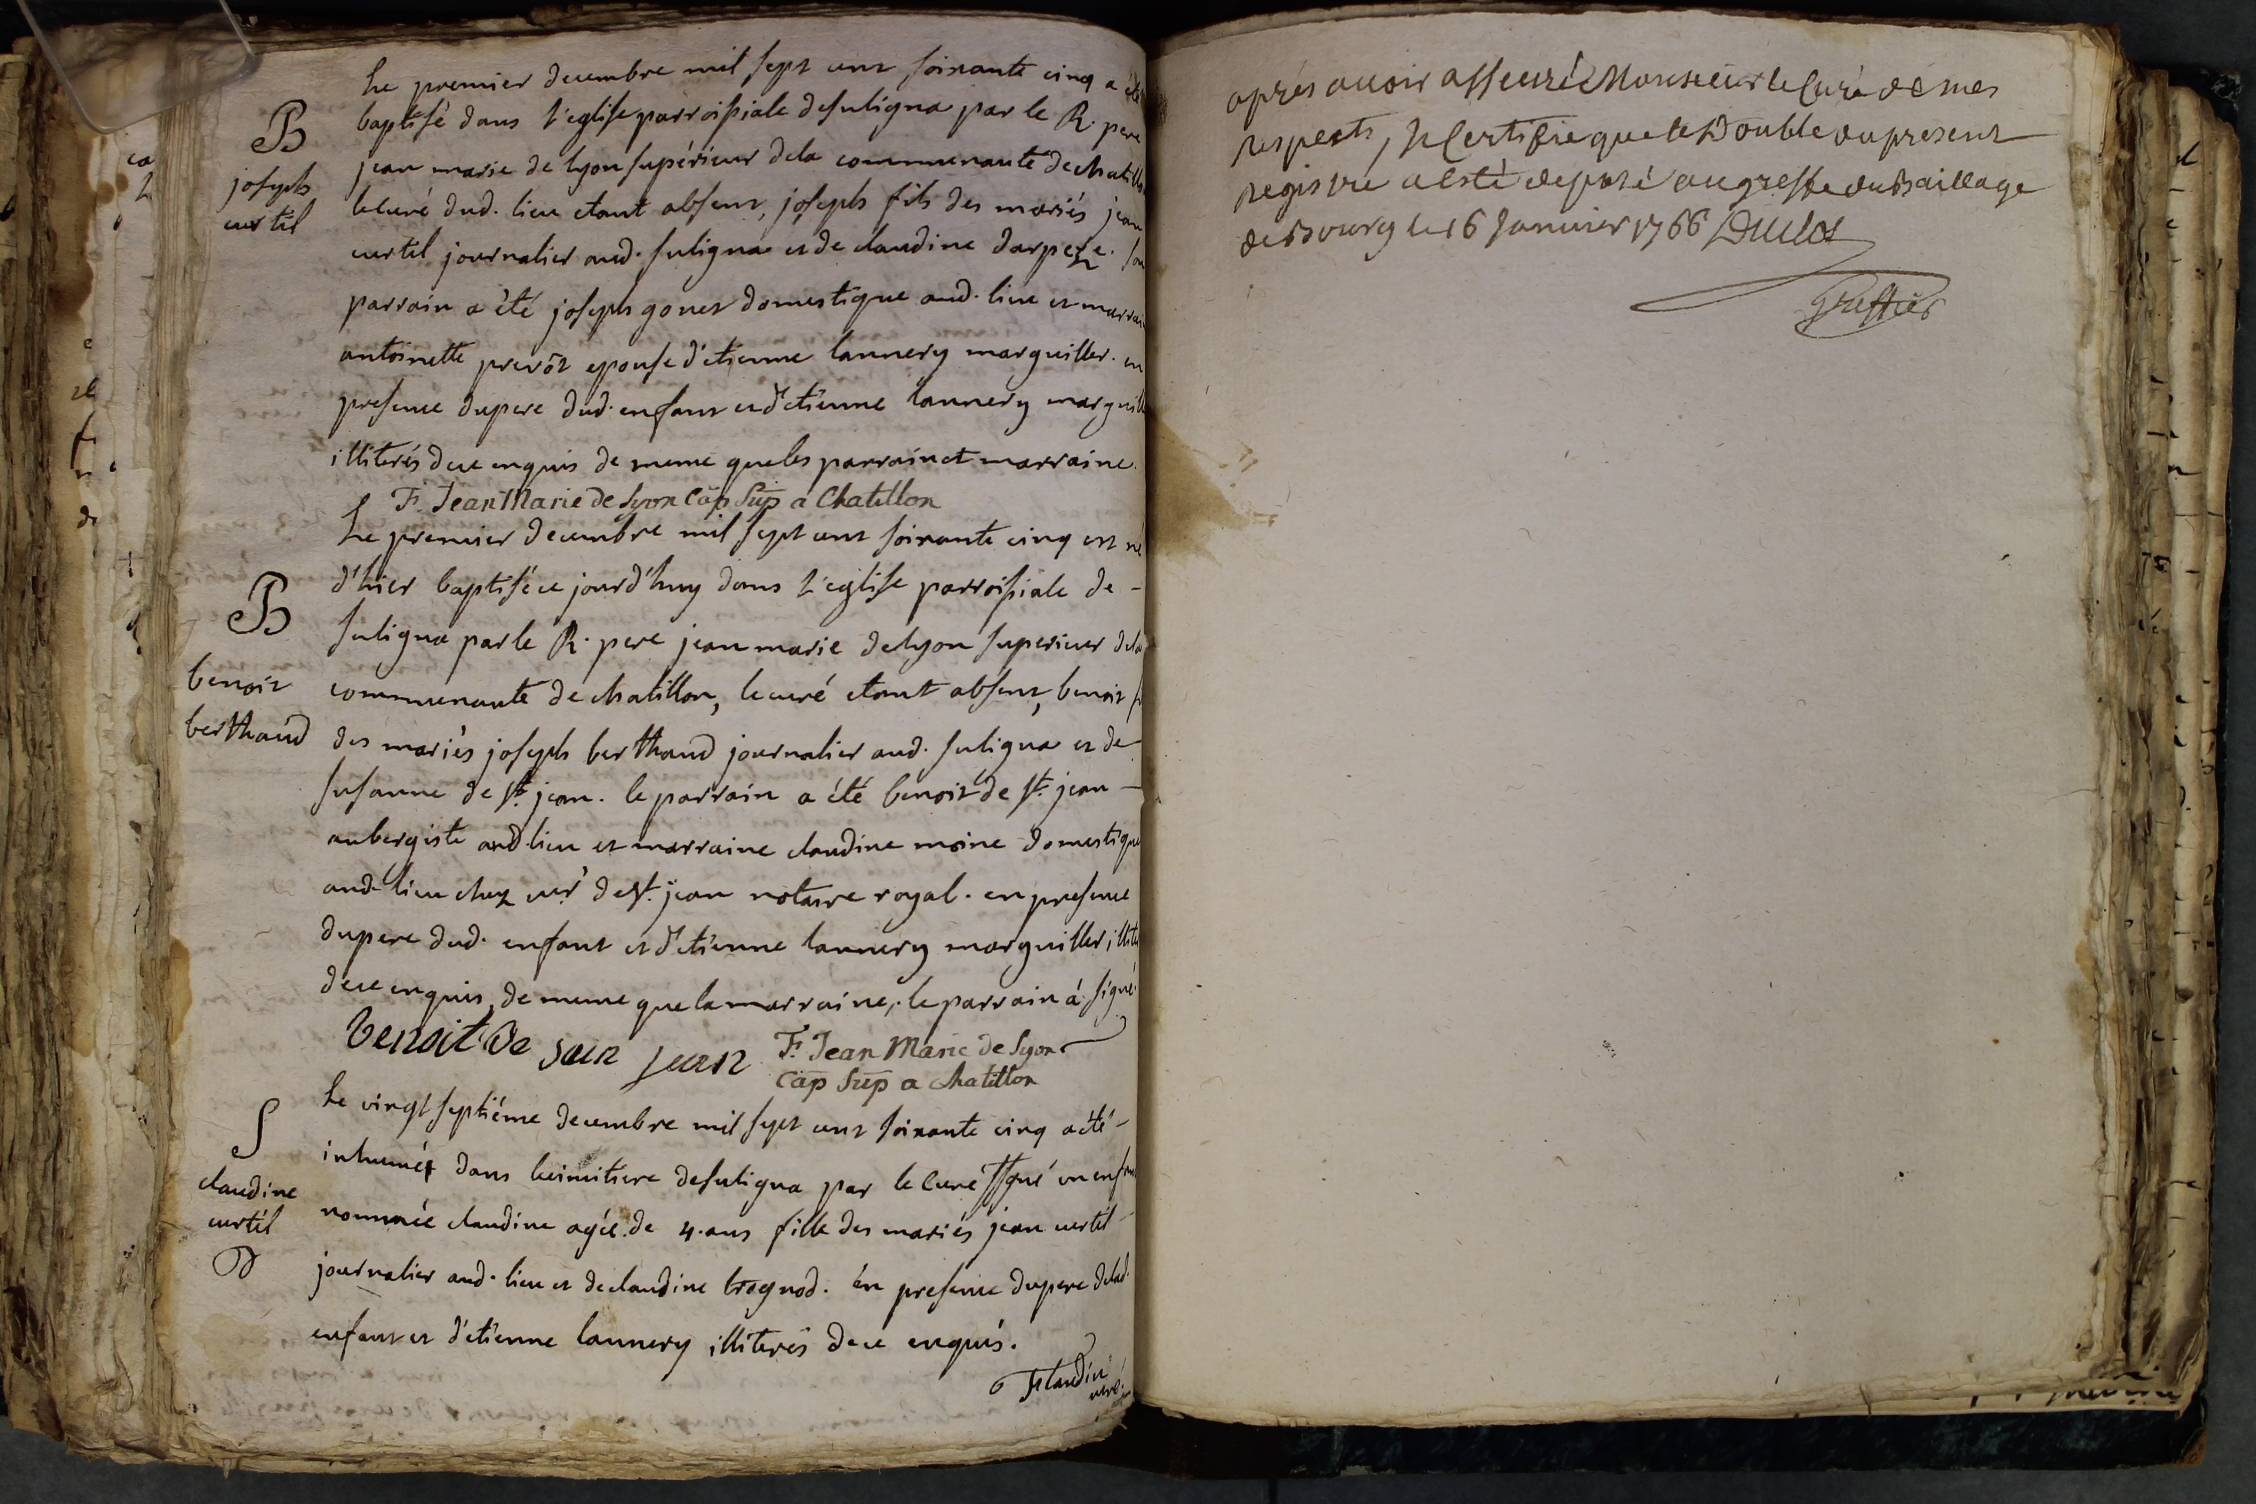 B
joseph
curtil
Le premier decembre mil sept cent soixante cinq a été
baptisé dans l'eglise parroissiale de suligna par le R. pere
jean marie de lyon supérieur de la communauté de chatillo
le curé dud. lieu etant absent, joseph fils des mariés jean
curtil journalier aud. suligna et de claudine darpeze. son
parrain a été joseph gonet domestique aud. lieu et marrai
antoinette prevôt epouse d'etienne lannery marguiller. en
presence du pere dud. enfant et d'etienne lannery marguill
illiterés de ce enquis de meme que les parrain et marraine.
F. Jean Marie de Lyon Cap Sup a Chatillon
B
benoit
berthaud
Le premier decembre mil sept cent soixante cinq est né
d'hier baptisé ce jourd'huy dans l'eglise parroissiale de -
suligna par le R. pere jean marie de lyon superieur de la
communauté de chatillon, le curé etant absent, benoit fi
des mariés joseph berthaud journalier aud. suligna et de
susanne de st. jean. le parrain a été benoit de st. jean -
aubergiste aud lieu et marraine claudine moine domestique
aud. lieu chez de st. jean notaire royal. en presence
du pere dud. enfant et d'etienne lannery marguiller, illité
de ce enquis, de meme que la marraine, le parrain à signé.
benoit de sein jean F. Jean Marie de Lyon
Cap Sup a chatillon
S
claudine
curtil
Le vingt septiéme decembre mil sept cent soixante cinq a été -
inhumée dans le cimitiere de suligna par le curé ssgné un enfan
nommée claudine agée de 4. ans fille des mariés jean curtil -
journalier aud. lieu et de claudine brognod. en presence du pere de lad.
enfant et d'etienne lannery illiterés de ce enquis.
Flandin
curé
après avoir asseuré Monsieur le Curé de mes
respects, Je Certifie que le Double du present
Registre a esté deposé au greffe du Bailliage
de Bourg le 16 Janvier 1766 Duclos
Greffier